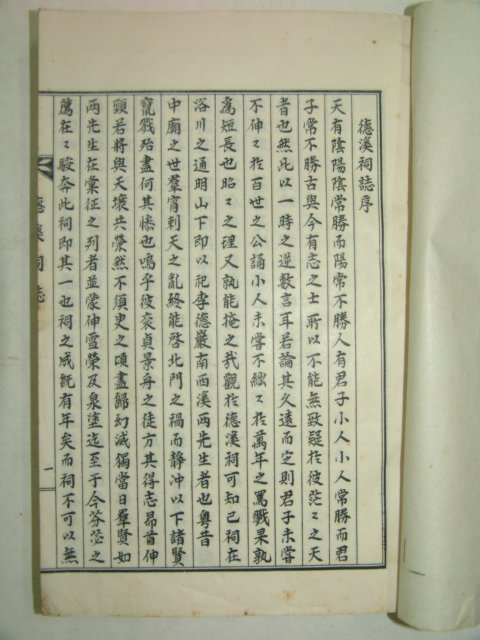 德溪祠誌序
天有陰陽陰常勝而陽常不勝人有君子小人小人常勝而君
子常不勝古與今有志之士所以不能無致疑於彼茫〻之天
者也然此以一時之逆數言耳若論其久遠而定則君子未嘗
不伸〻於百世之公誦小人未嘗不絀〻於萬年之罵戮果孰
爲短長也昭〻之理又孰能掩之哉觀於德溪祠可知已祠在
浴川之通明山下即以祀李德巖南西溪兩先生者也粤昔
中廟之世羣宵剌天之亂終能啓北門之禍而静冲以下諸賢
竄戮殆盡何其慘也嗚乎彼袞貞景舟之徒方其得志昻首伸
頸若將與天壤共榮然不須臾之頃盡歸幻滅獨當日羣賢如
兩先生在彙征之列者並蒙伸雪榮及泉塗迄至于今芬苾之
薦在〻駿奔此祠即其一也祠之成旣有年矣而祠不可以無
德溪祠誌
一